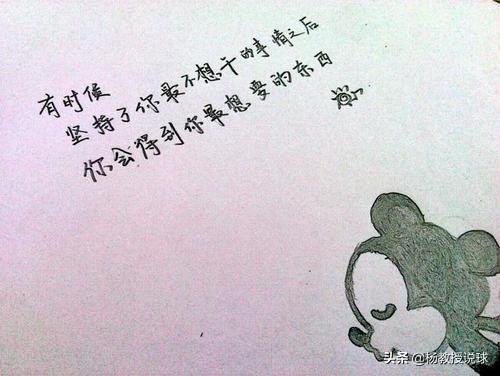 有时候
坚持了你最不想干的事情之后
你会得到你最想要的东西
头条 @杨教授说球